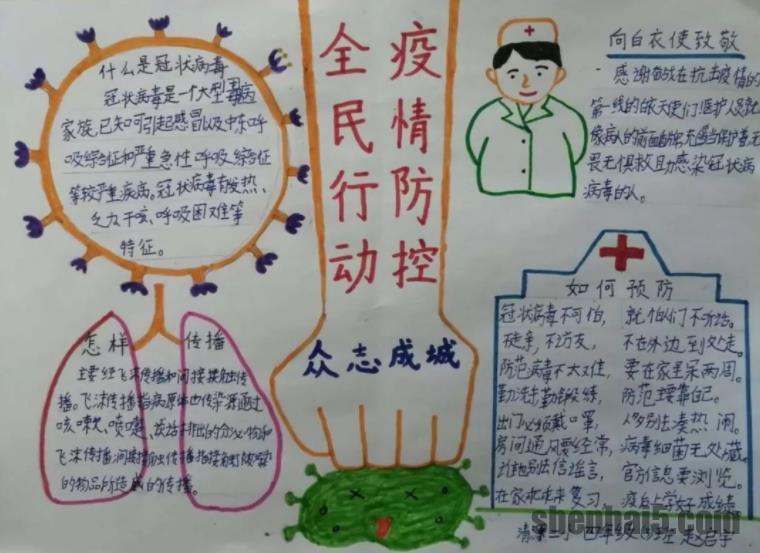 什么是冠状病毒
冠状病毒是一个大型病毒
家族,已知可引起感冒以及中东呼
吸综合征和严重急性呼吸综合征
等较严重疾病。冠状病毒有发热、
乏力干咳、呼吸困难等
特征。
全民行动
疫情防控
众志成城
向白衣使致敬
感谢奋战在抗击疫情的
第一线的白衣天使们医护人员就
畏无惧救助感染冠状病
病毒的人。
怎样传播
主要经飞沫传播和间接接触传
播。飞沫传播指病原体由传染源通过
咳嗽、喷嚏、谈话排出的分泌物和
的物品所造成的传播。
如何预防
冠状病毒不可怕,就怕你们不听话。
不走亲,不访友,不在外边到处走。
防范病毒不太难,要在家里呆两周。
勤洗手勤锻练,防范主要靠自己。
出门必须戴口罩,人多别去凑热闹。
房间通风要经常,病毒细菌无处藏。
别信谣言,官方信息要浏览。
在家 复习
小 四年级
shenbai5.com